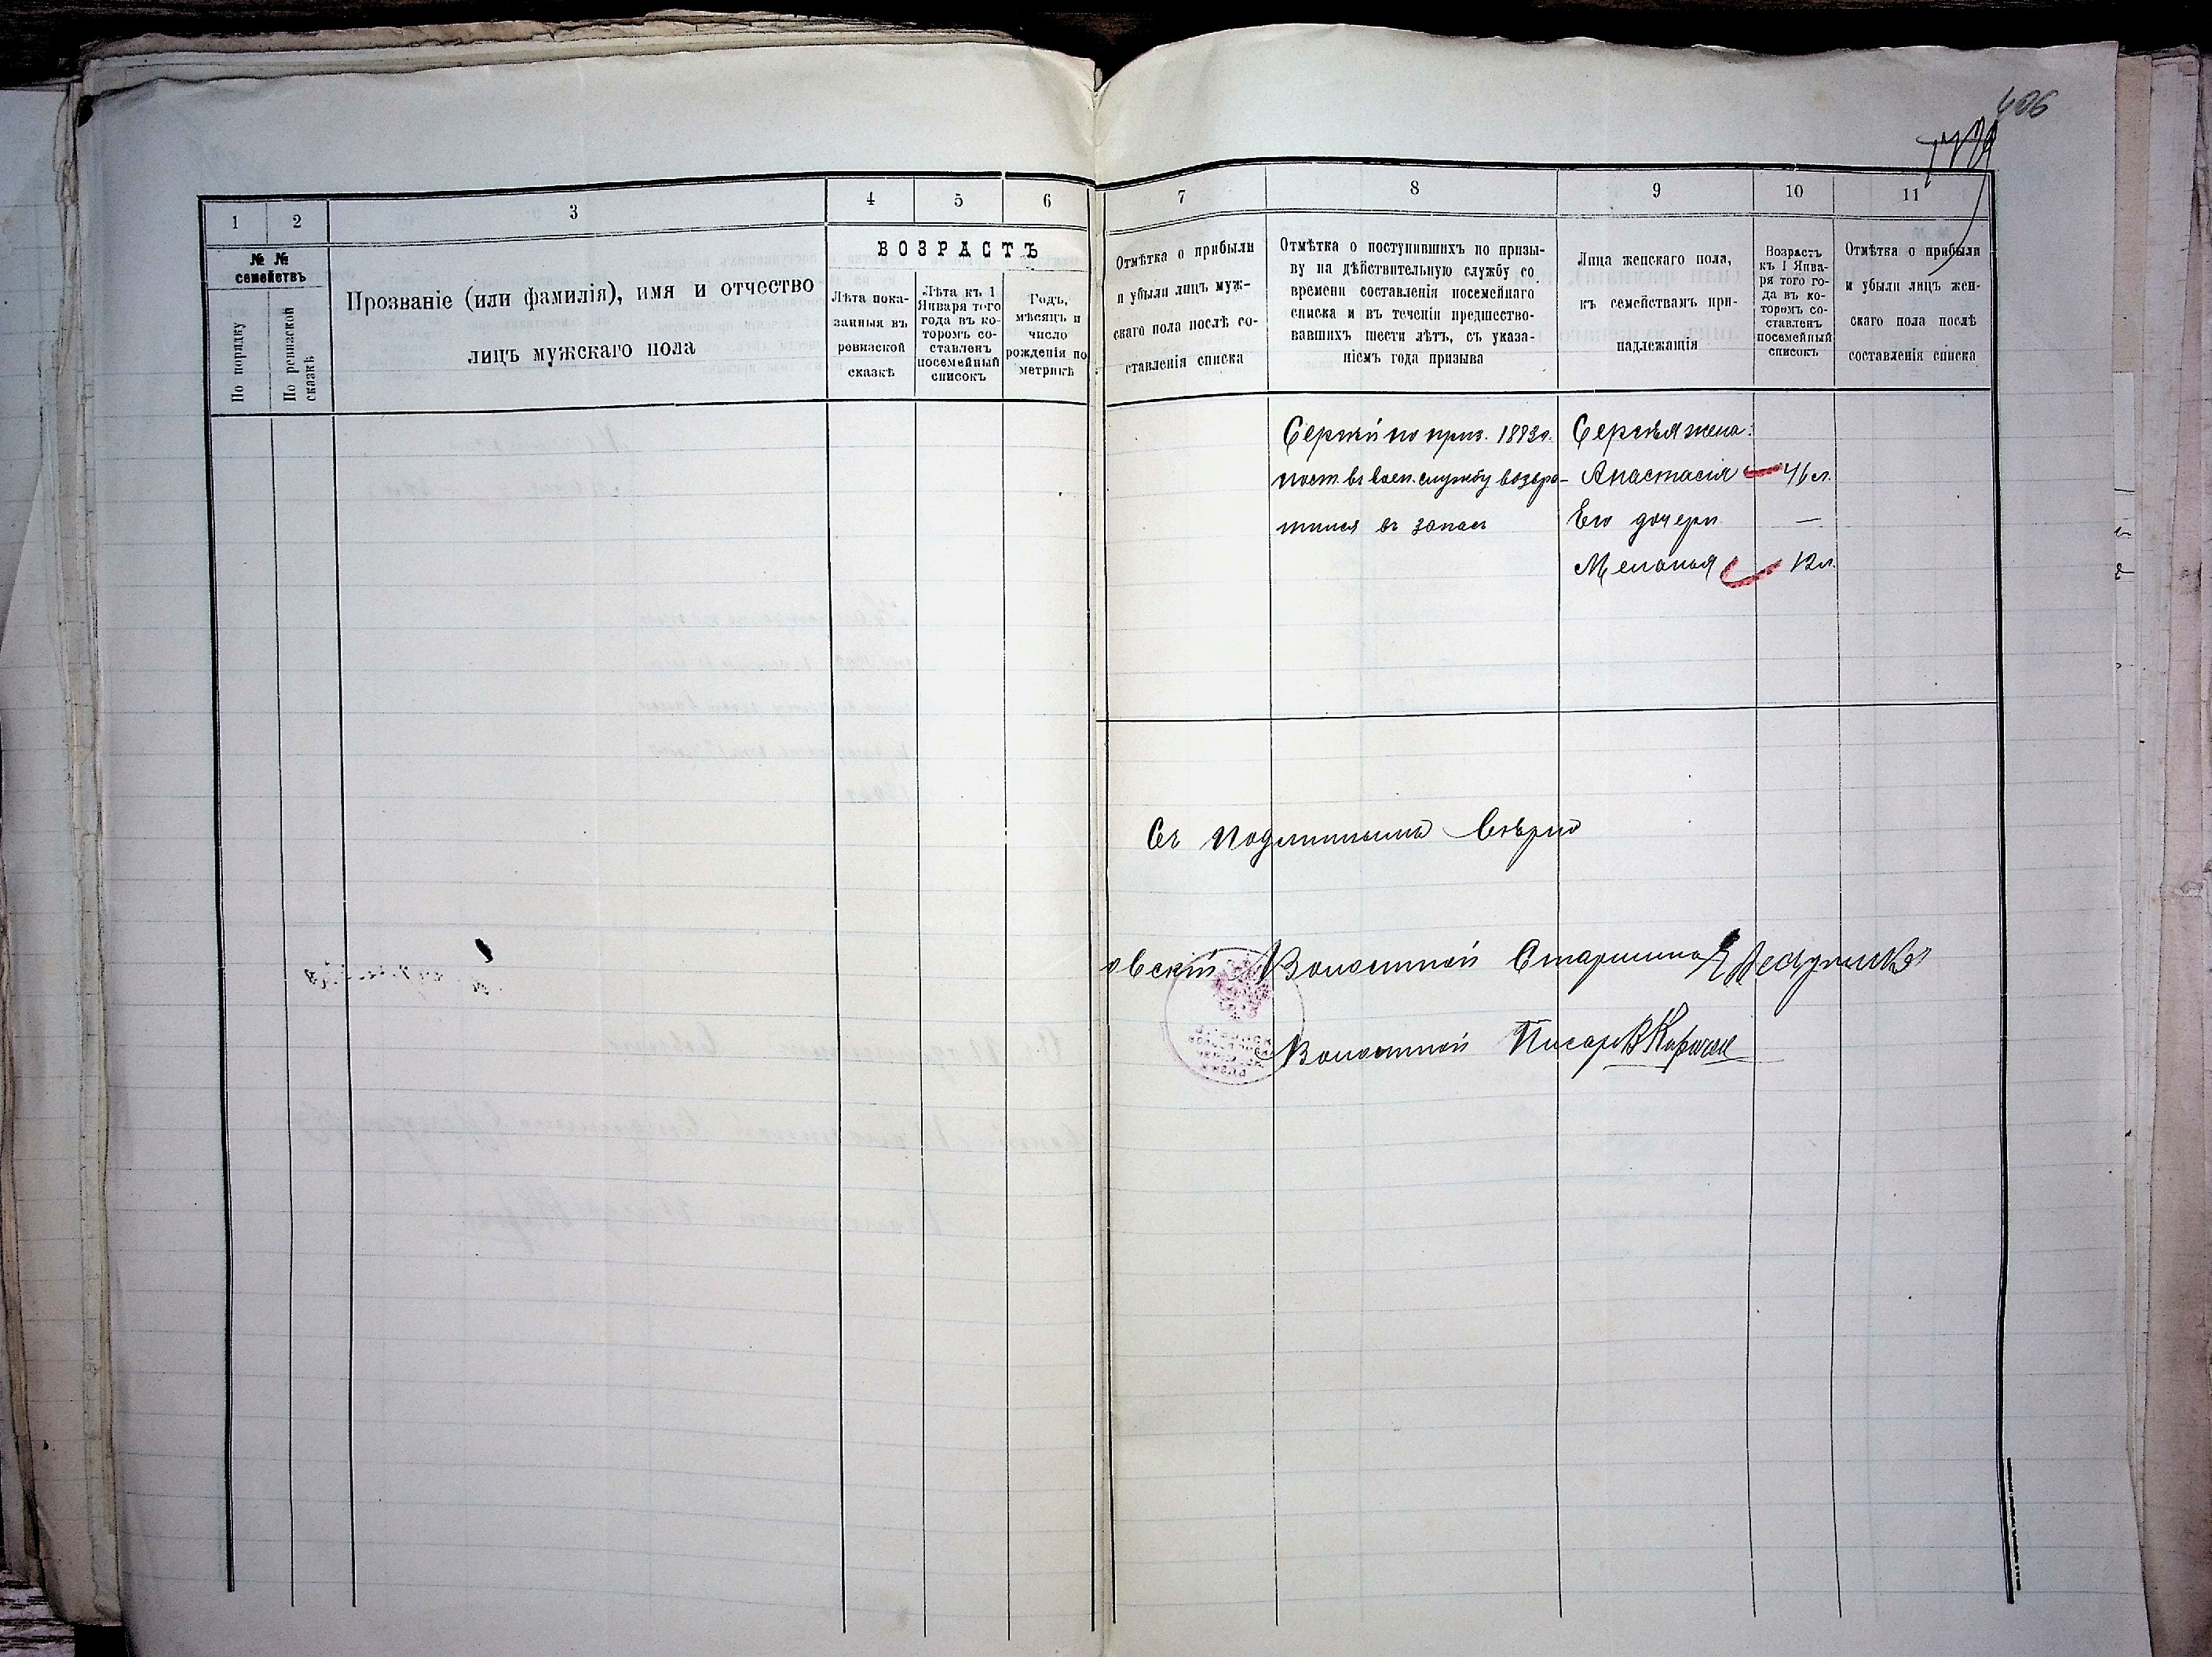 406
1 2 3 4 5 6
№ № семействъ
По порядку
По ревизской сказкѣ
Прозваніе (или фамилія), имя и отчество
лицъ мужскаго пола
ВОЗРАСТЪ
Лѣта пока-
занныя въ
ревизской
сказкѣ
Лѣта къ 1
Января того
года въ ко-
торомъ со-
ставленъ
посемейный
списокъ
Годъ,
мѣсяцъ и
число
рожденія по
метрикѣ
7 8 9 10 11
Отмѣтка о прибыли
и убыли лицъ муж-
скаго пола послѣ со-
ставленія списка
Отмѣтка о поступившихъ по призы-
ву на дѣйствительную службу со
времени составленія посемейнаго
списка и въ теченіи предшество-
вавшихъ шести лѣтъ, съ указа-
ніемъ года призыва
Лица женскаго пола,
къ семействамъ при-
надлежащія
Возрастъ
къ 1 Янва-
ря того го-
да въ ко-
торомъ со-
ставленъ
посемейный
списокъ
Отмѣтка о прибыли
и убыли лицъ жен-
скаго пола послѣ
составленія списка
Сергѣй по приз. 1893г.
пост. въ воен. службу возвра-
тился въ запас
Сергѣя жена:
Анастасія 46 л.
Его дочери —
Меланья 12 л.
Съ подлиннымъ вѣрно
овскій Волостной Старшина
Волостной Писарь